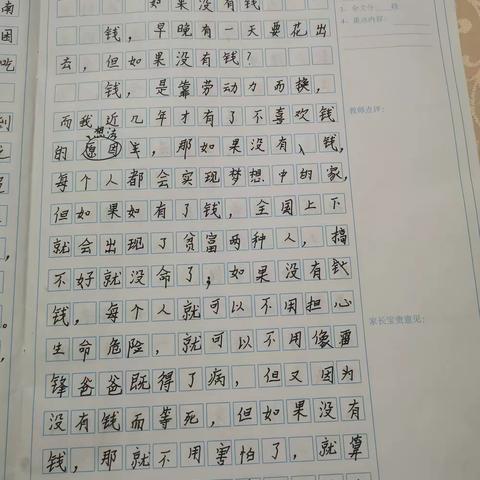 如果没有钱
钱，早晚有一天要花出
去，但如果没有钱？
钱，是靠劳动力而换，
而我近几年才有了不喜欢钱
想法
的愿因羊，那如果没有、钱，
每个人都会实现梦想中的家，
但如果如有了钱，全国上下
就会出现了贫富两种人，搞
不好就没命了；如果没有钱
钱，每个人就可以不用担心
生命危险，就可以不用像雷
锋爸爸既得了病，但又因为
没有钱而等死，但如果没有
钱，那就不用害怕了，就算
南
困
吃
到
。
教师点评：
家长宝贵意见：